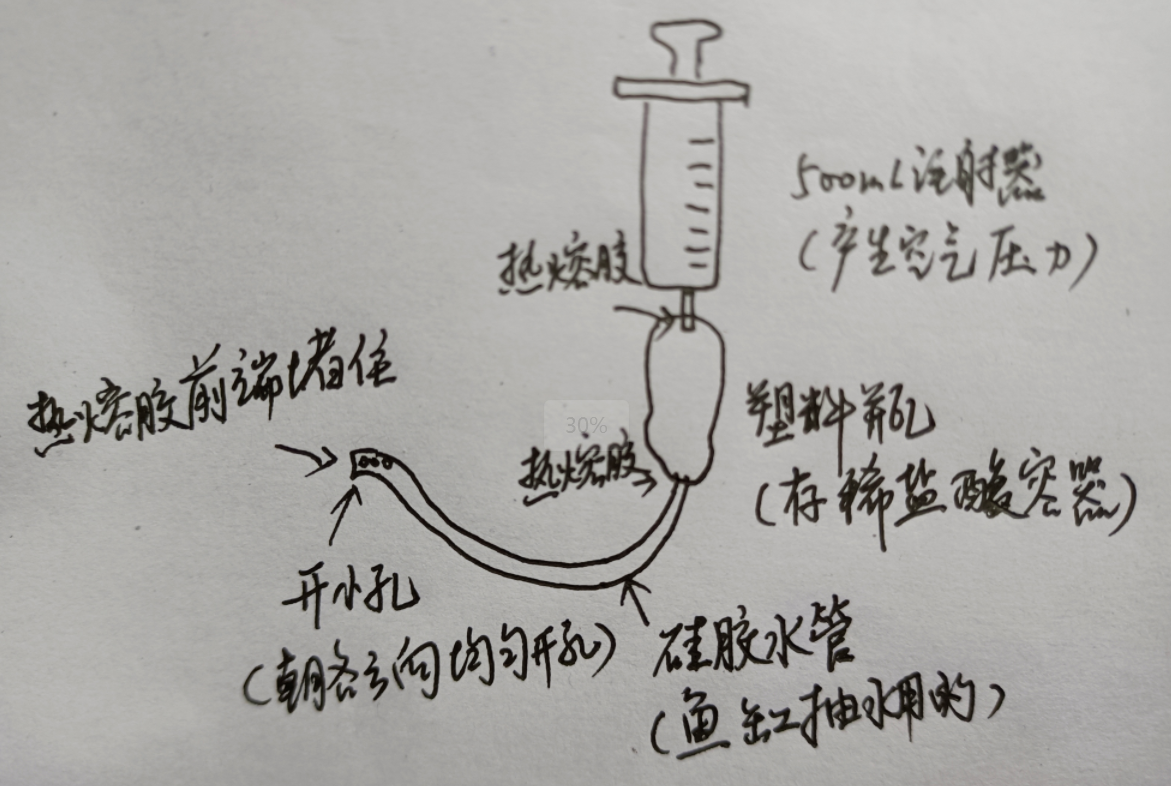 500mL注射器
(产生空气压力)
热熔胶
热熔胶前端堵住
塑料瓶
(存稀盐酸容器)
30%
热熔胶
开小孔
(朝各方向均匀开孔)
硅胶水管
(鱼缸抽水用的)